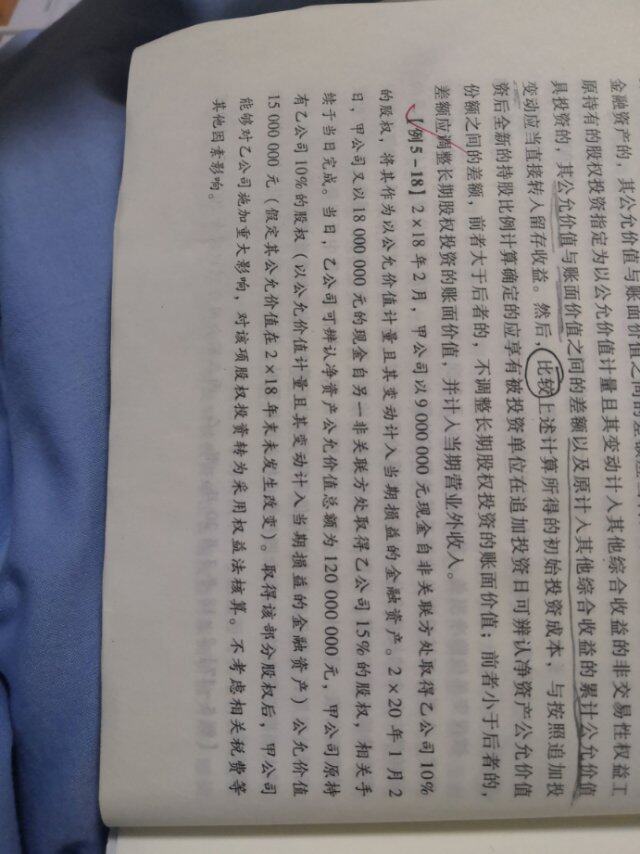 金融资产的，其公允价值与账面价值之间的
原持有的股权投资指定为以公允价值计量且其变动计入其他综合收益的非交易性权益工
具投资的，其公允价值与账面价值之间的差额以及原计入其他综合收益的累计公允价值
变动应当直接转入留存收益。然后，比较上述计算所得的初始投资成本，与按照追加投
资后全新的持股比例计算确定的应享有被投资单位在追加投资日可辨认净资产公允价值
份额之间的差额，前者大于后者的，不调整长期股权投资的账面价值；前者小于后者的，
差额应调整长期股权投资的账面价值，并计入当期营业外收入。
【例5－18】2×18年2月，甲公司以9 000 000元现金自非关联方处取得乙公司10%
的股权，将其作为以公允价值计量且其变动计入当期损益的金融资产。2×20年1月2
日，甲公司又以18 000 000元的现金自另一非关联方处取得乙公司15%的股权，相关手
续于当日完成。当日，乙公司可辨认净资产公允价值总额为120 000 000元，甲公司原持
有乙公司10%的股权（以公允价值计量且其变动计入当期损益的金融资产）公允价值
15 000 000元（假定其公允价值在2×18年末未发生改变）。取得该部分股权后，甲公司
能够对乙公司施加重大影响，对该项股权投资转为采用权益法核算。不考虑相关税费等
其他因素影响。